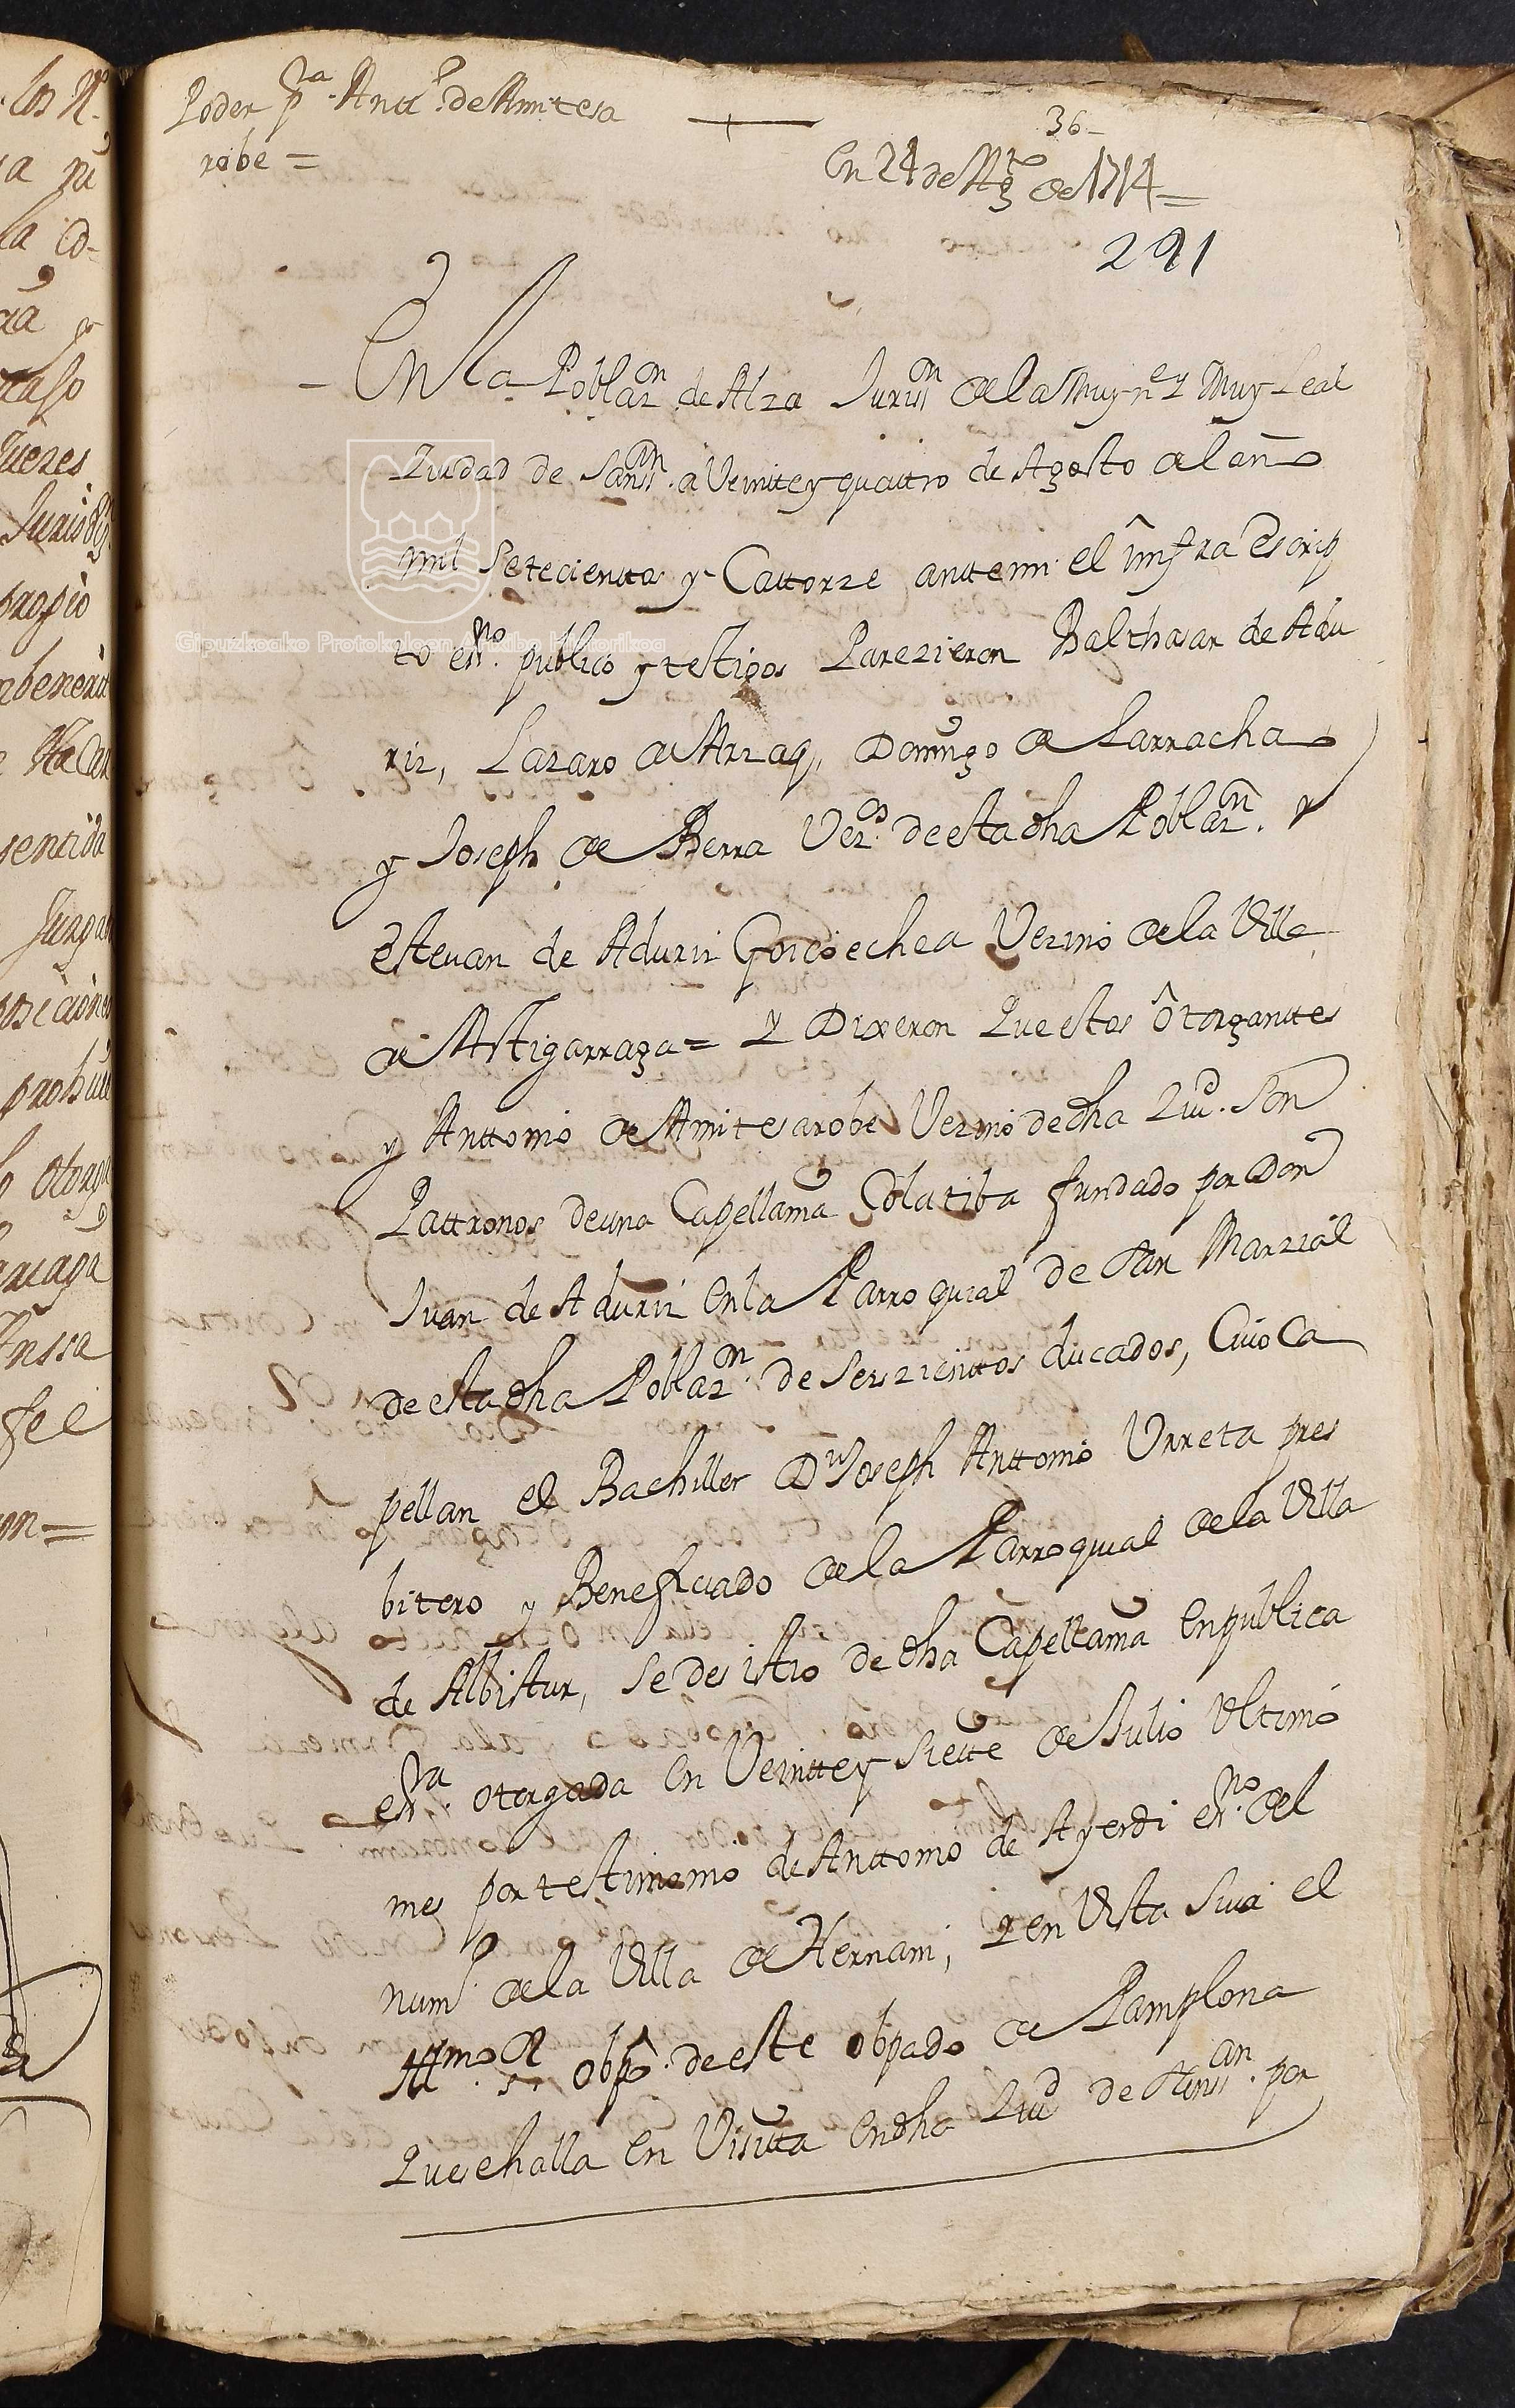 Poder pª. Anttº. de Amitesa
robe =
36-
En 24 de Agto de 1714 =
291
En la Poblazon de Alza Jurisn de la Muy n. e y Muy Leal
Ziudad de Sansn. a Veintte y quattro de Agosto del año
mil Setecienttos y Cattorze antte mi el ynfra escrip
to essno. publico y testigos Parezieron Balthasar de Adu
riz, Lazaro de Arzaq, Domingo de Larrachao
y Joseph de Berra Vezos. de esta dha Poblazn. y
estevan de Aduriz Goicoechea Vezino de la Villa
de Astigarraga = Y Dixeron Que estos otorganttes
y Anttonio de Amitesarobe Vezino de dha Ziud. Son
Pattronos de una Capellania Colatiba fundado por Don
Juan de Aduriz En la Parroquial de San Marzial
de esta dha Poblazon. de Seiszienttos ducados, Cuio Ca
pellan el Bachiller Dn Joseph Anttonio Urreta pres
bitero y Beneficiado de la Parroquial de la Villa
de Albistur, se desistio de dha Capellania En publica
essra. otorgada En Veintte y Siette de Julio Ultimo
mes por testimonio de Anttonio de Ayerdi essno. del
num. de la Villa de Hernani, y en Vista Suia el
Illmo. Sr. obpo. de este obpado de Pamplona
Que se halla En Visitta En dha Ziud de Sanssan. por
Gipuzkoako Protokoloen Artxibo Historikoa
los
a
la
caso
Jueres
propio
sentida
otorg
fee